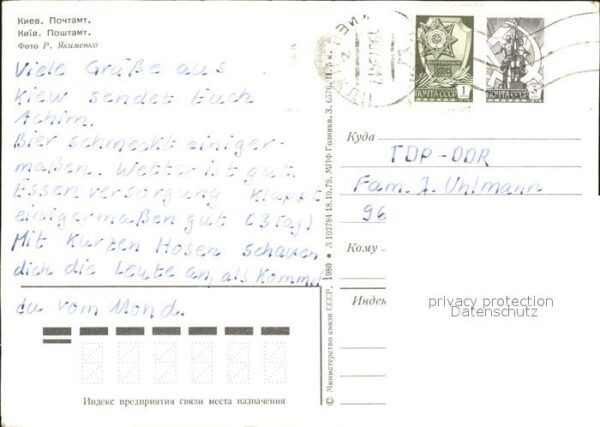 Киев. Почтамт.
Київ. Поштамт.
Фото Р. Якименко
Viele Grüße aus
Kiew sendet Euch
Achim.
Bier schmeckt einiger-
maßen. Wetter ist gut.
Essenversorgung klappt
einigermaßen gut (3 Tag)
Mit kurzen Hosen schauen
dich die Leute an, als kommst
du vom Mond.
Индекс предприятия связи места назначения
© Министерство связи СССР. 1980 ● Л 102784 18.10.79. МПФ Гознака. З. 6576. Ц. 5 к.
ПОЧТА СССР 1
ПОЧТА СССР
Куда
TDP-DDR
Fam. J. Uhlmann
96
Кому
Индек
privacy protection
Datenschutz